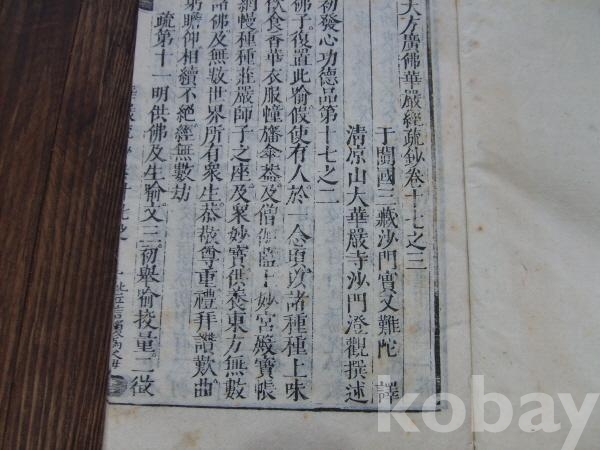 大方廣佛華嚴經疏鈔卷十七之三
于闐國三藏沙門實叉難陀 譯
清涼山大華嚴寺沙門澄觀撰述
初發心功德品第十七之二
佛子復置此喻假使有人於一念頃以諸種種上味
飲食香華衣服幢旛傘葢及僧伽藍上妙宮殿寶帳
網幔種種莊嚴師子之座及衆妙寶供養東方無數
諸佛及無數世界所有衆生恭敬尊重禮拜讚歎曲
躬瞻仰相續不絕經無數劫
疏第十一明供佛及生喻文三初舉喻挍量二徵
kobay